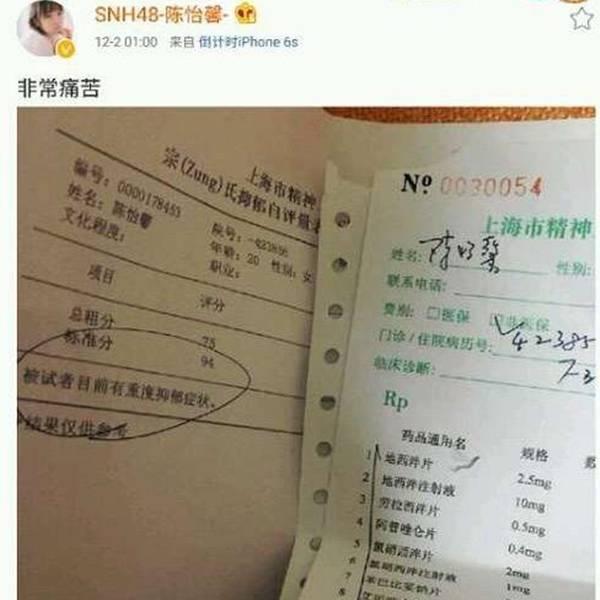 SNH48-陈怡馨-
12-2 01:00 来自 倒计时iPhone 6s
非常痛苦
上海市精神
宗(Zung)氏抑郁自评量表
编号: 0000178453
姓名: 陈怡馨
文化程度:
年龄: 20 性别: 女
职业:
项目 评分
总粗分 75
标准分 94
被试者目前有重度抑郁症状。
结果仅供参考
№ 0030054
上海市精神
姓名: 陈怡馨 性别:
联系电话:
费别: □医保 □非医保
门诊/住院病历号: 42385
临床诊断:
Rp
药品通用名 规格
1 地西泮片 2.5mg
2 地西泮注射液 10mg
3 劳拉西泮片 0.5mg
4 阿普唑仑片 0.4mg
5 氯硝西泮片 2mg
6 氯硝西泮注射液 1mg
7 苯巴比妥钠片
8